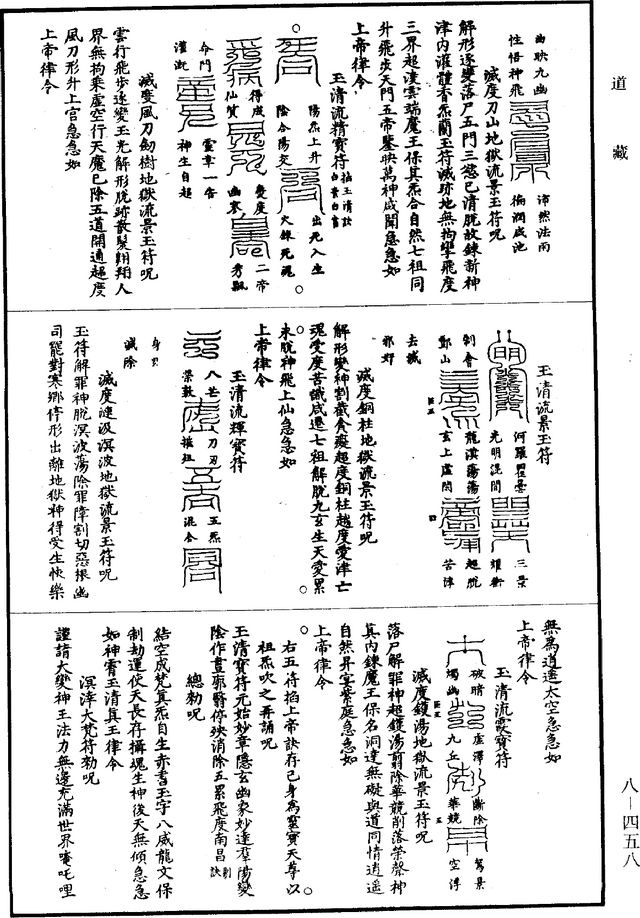 道藏
曲映九幽 沛然法雨
性悟神飛 徧潤咸池
滅度刀山地獄流景玉符呪
解形逐變落尸五門三慾已清脫故鍊新神
津内灌體香炁蘭玉符滅跡地無拘攣飛度
三界超漢雲端魔王保真炁合自然七祖同
升飛步天門五帝鑒映萬神咸聞急急如
上帝律令
玉清流精寶符 掐玉清訣
陽炁上升 出死入生
陰合陽交 火鍊死魂
得成 慶度 二帝
仙質 幽寒
命門
灌漑 神生自超
滅度風刀劒樹地獄流景玉符呪
雲行飛步逐變玉光解形脫跡散髮翱翔人
界無拘束虛空行天魔已除五道開通超度
風刀形升上宮急急如
上帝律令
玉清流景玉符
何羅瞿曇 三景
光明混間
制會 龍漢蕩蕩 超脫
酆山 玄上虛 苦津
去穢
邪奸
滅度銅柱地獄流景玉符呪
解形變神割截貪癡超度銅柱越度愛津亡
魂受度苦識咸還七祖解脫九玄生天愛累
未脫神飛上仙急急如
上帝律令
玉清流輝寶符
八芒 刀刃 五炁
摧 混合
滅除
滅度 溟波地獄流景玉符呪
玉符解罪神脫溟波蕩除罪障割切惡根幽
司罷對寒鄉停形出離地獄神得受生快樂
無為逍遙太空急急如
上帝律令
玉清流霞寶符
破暗 斷除
燭幽 九丘 華競 空浮
滅度鑊湯地獄流景玉符呪
落尸解罪神超鑊湯翦除華競削落榮聲神
真内鍊魔王保名洞達無礙與道同情逍遙
自然昇宮紫庭急急如
上帝律令
右五符掐上帝訣存己身為靈寶天尊以
祖炁吹之再誦呪
玉清寶符元始妙章隱玄幽象妙達羣陽變
陰作晝 翳停殃消除五累飛度南昌
總勑呪
結空成梵真炁自生赤書玉字八威龍文保
制劫運使天長存攝魂生神後天無傾急急
如神霄玉清真王律令
溟涬大梵符勑呪
謹請大變神王法力無邊充滿世界唵吒哩
八—四五八